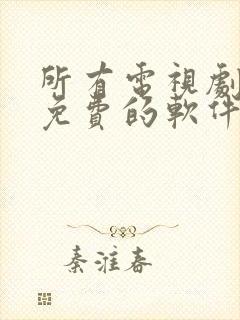 所有電視劇
免費的軟件
秦淮春